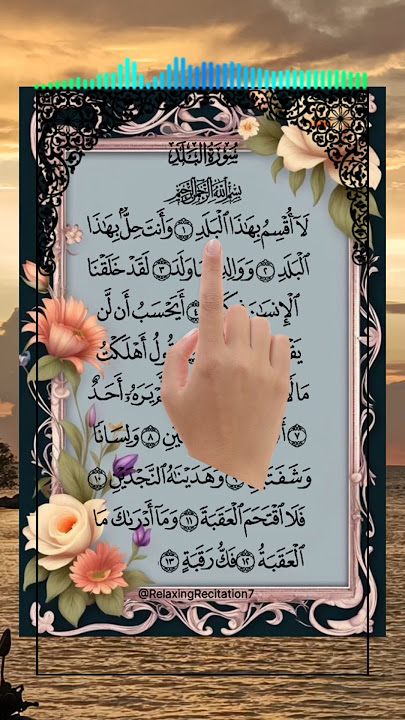 سُورَةُ الْبَلَدِ
بِسْمِ اللَّهِ الرَّحْمَٰنِ الرَّحِيمِ
لَآ أُقْسِمُ بِهَٰذَا ٱلْبَلَدِ ١ وَأَنتَ حِلٌّۢ بِهَٰذَا
ٱلْبَلَدِ ٢ وَوَالِدٍ وَلَدَ ٣ لَقَدْ خَلَقْنَا
ٱلْإِنسَٰنَ ٤ أَيَحْسَبُ أَن لَّن
أَهْلَكْتُ
أَحَدٌ
٧ ٨ وَلِسَانًا
٩ وَهَدَيْنَٰهُ ٱلنَّجْدَيْنِ ١٠
فَلَا ٱقْتَحَمَ ٱلْعَقَبَةَ ١١ وَمَآ أَدْرَىٰكَ مَا
ٱلْعَقَبَةُ ١٢ فَكُّ رَقَبَةٍ ١٣
@RelaxingRecitation7